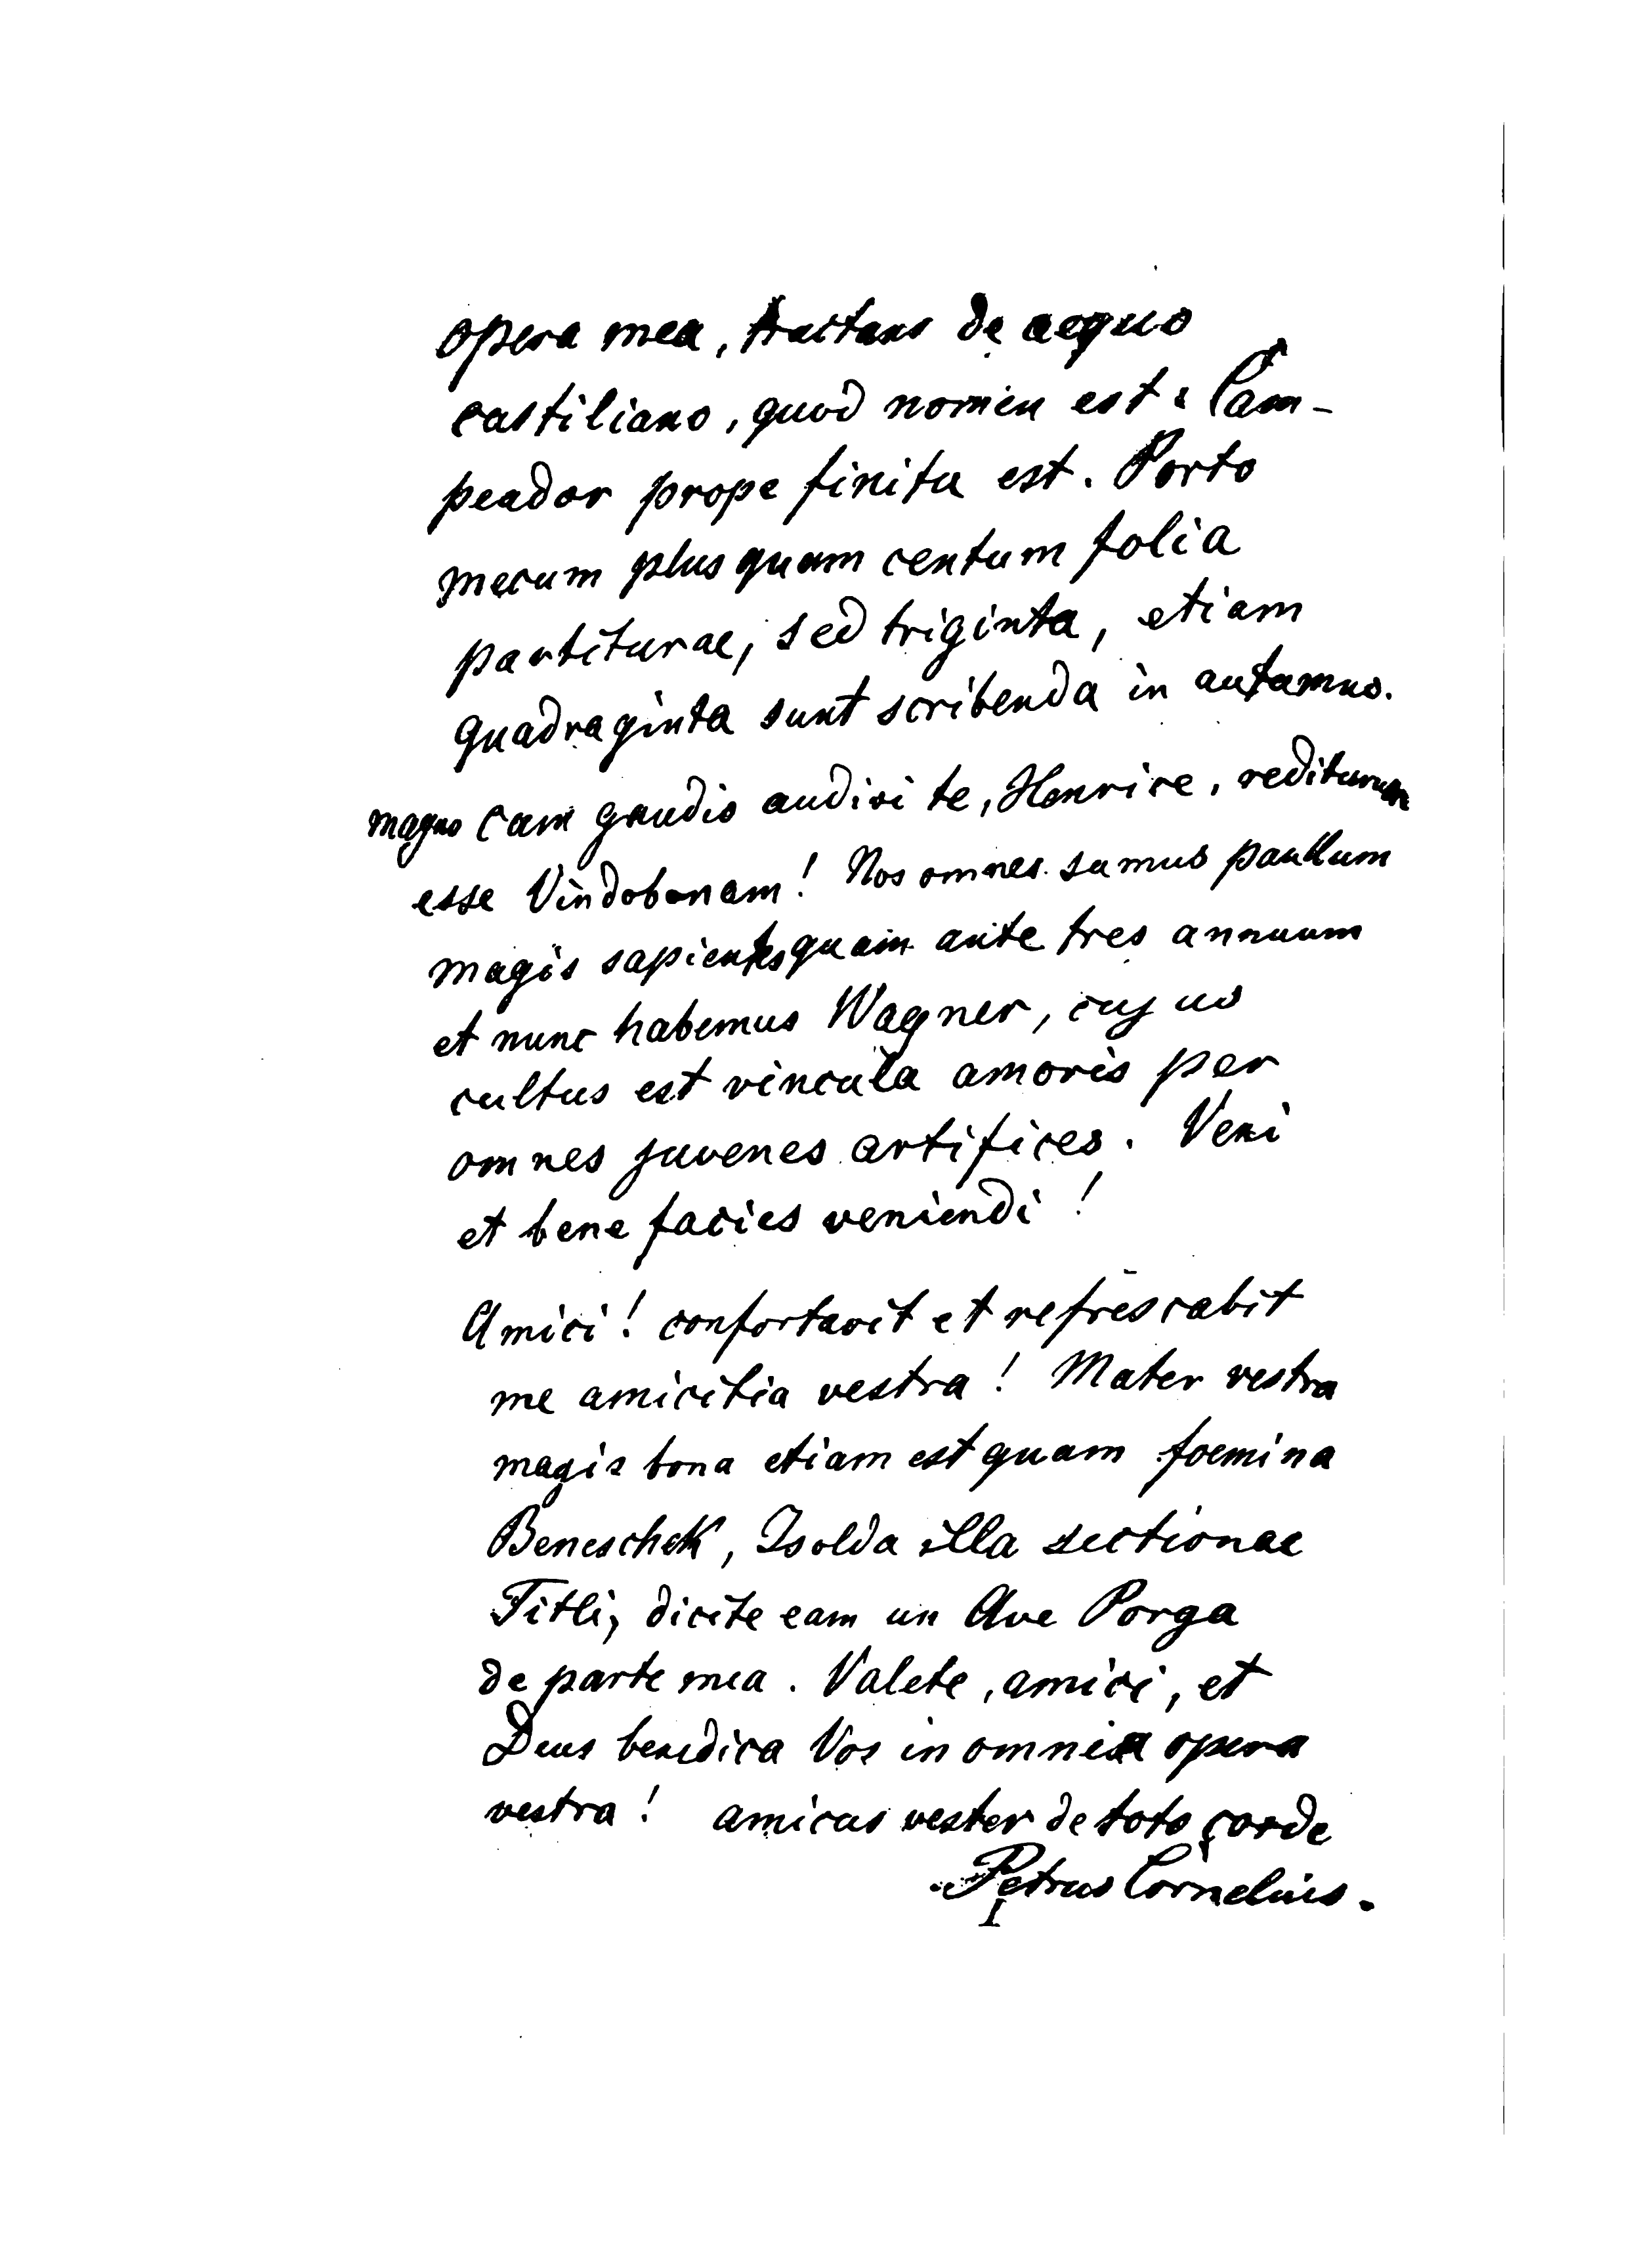 opera mea, tractans de aequo
castiliano, quod nomen est: Cam-
peador prope finita est. Porto
mecum plus quam centum folia
partiturae, sed triginta, etiam
quadraginta sunt scribenda in autumno.
magno cum gaudio audivi te, Henrice, rediturum
esse Vindobonam! Nos omnes sumus paullum
magis sapientes quam ante tres annuum
et nunc habemus Wagner, cujus
cultus est vincula amoris per
omnes juvenes artifices. Veni
et bene facies veniendi!
Amici! confortavit et refrescabit
me amicitia vestra! Mater vestra
magis bona etiam est quam foemina
Beneschek, Isolda illa sectionae
Titli, dicite eam un Ave Porga
de parte mea. Valete, amici, et
Deus benedica Vos in omnia opera
vestra! amicus vester de toto corde
Petrus Cornelius.